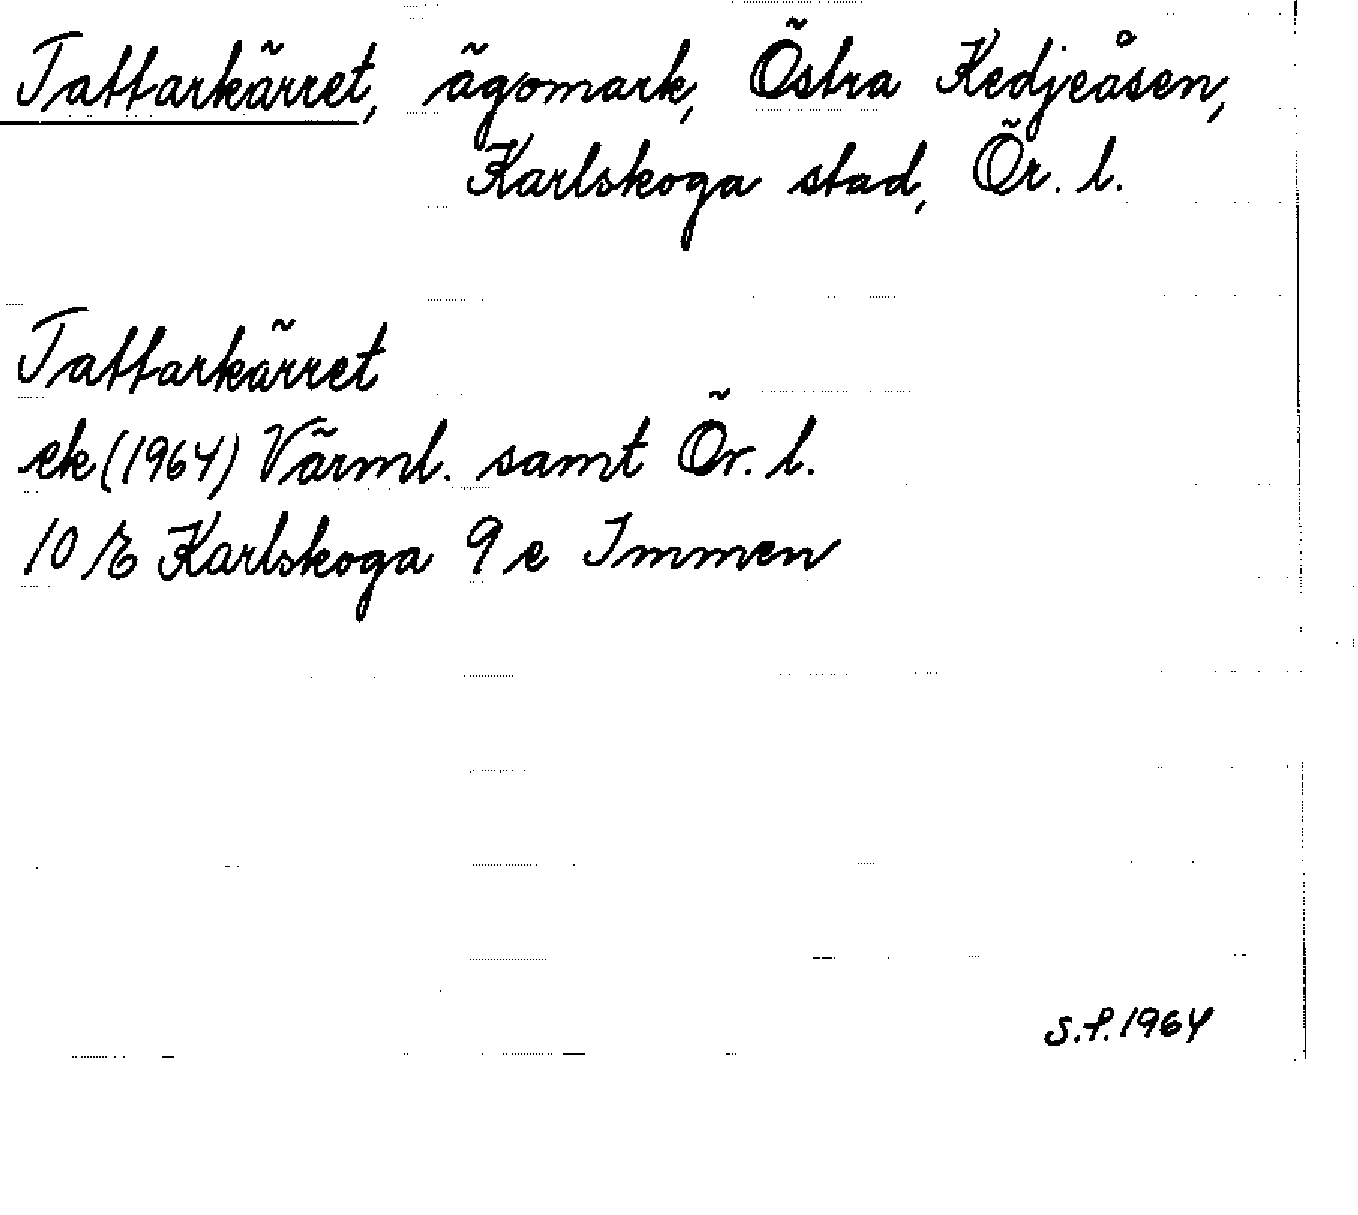 Tattarkärret, ägomark, Östra Kedjeåsen,
Karlskoga stad, Ör. l.
Tattarkärret
ek (1964) Värml. samt Ör. l.
10 E Karlskoga 9 e Immen
S.F. 1964